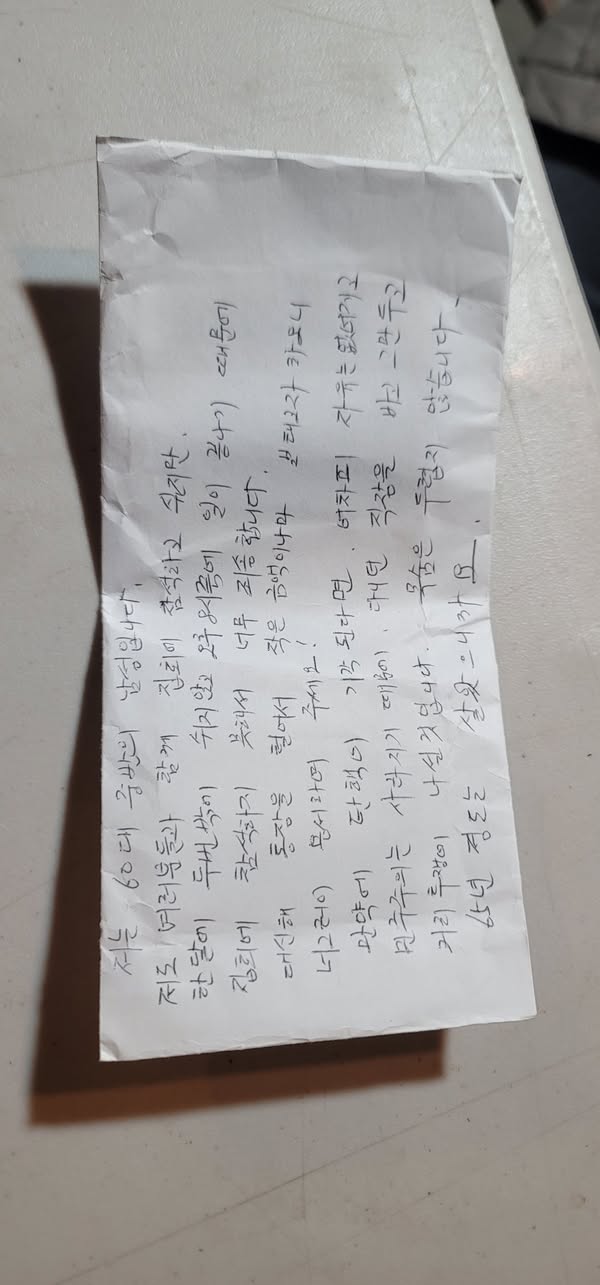 저는 60대 중반의 남성입니다.
저도 여러분들과 함께 집회에 참석하고 싶지만.
한달에 두번밖에 쉬지않고 오후8시쯤에 일이 끝나기 때문에
집회에 참석하지 못해서 너무 죄송합니다.
대신해 통장을 털어서 작은 금액이나마 보태고자 하오니
너그러이 용서하여 주세요!
만약에 탄핵이 기각된다면. 어차피 자유는 없어지고
민주주의는 사라지기 때문에. 다니던 직장을 바로 그만두고
거리투쟁에 나설것입니다. 목숨은 두렵지 않습니다.
65년 정도는 살았으니까요.